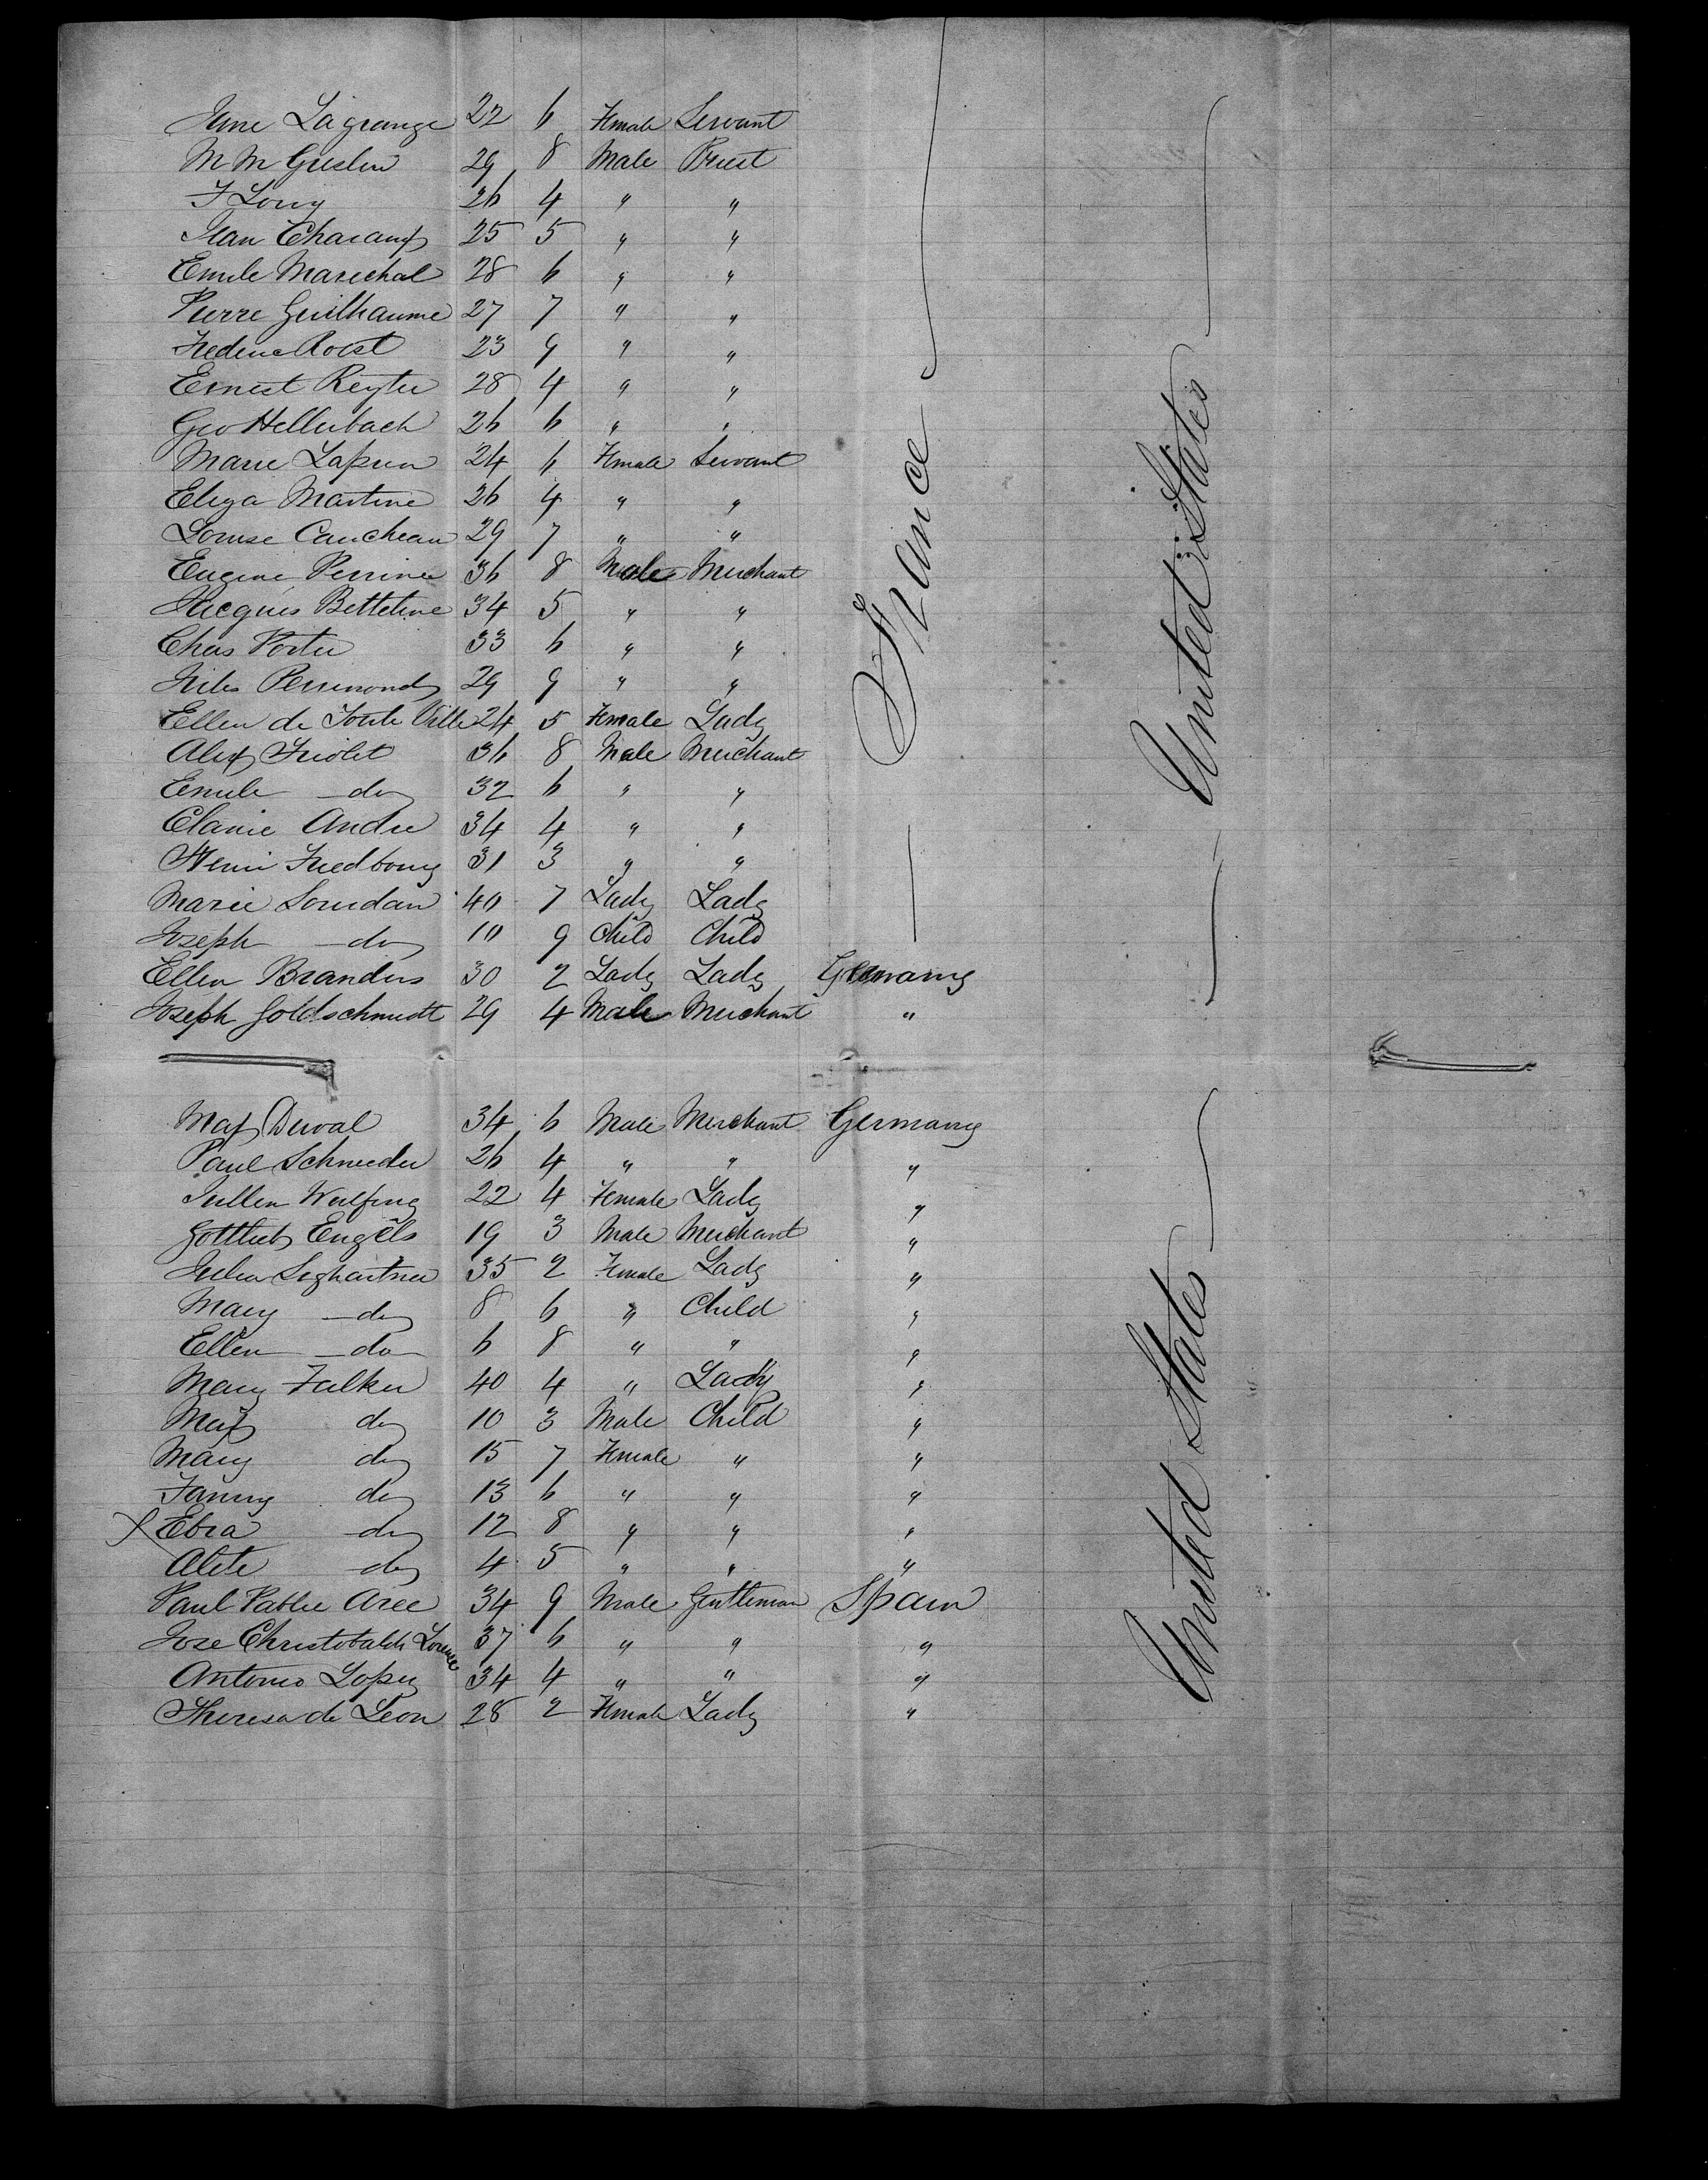 June Lagrange 22 6 Female Servant
M M Guslin 29 8 Male Priest
F Lony 26 4 " "
Jean Characuy 25 5 " "
Emile Marechal 28 6 " "
Pierre Guilhaume 27 7 " "
Frederic Roest 23 9 " "
Ernest Reyter 28 4 " "
Geo Hellerbach 26 6 " "
Marie Lapien 24 6 Female Servant
Eliza Martine 26 4 " "
Louise Caucheau 29 7 " "
Eugene Perrine 36 8 Male Merchant
Jacques Betteline 34 5 " "
Chas Porter 33 6 " "
Jules Perrimond 29 9 " "
Ellen de Toute Ville 24 5 Female Lady
Alex Triolet 36 8 Male Merchant
Emile do 32 6 " "
Clanie Andre 34 4 " "
Henri Friedbourg 31 3 " "
Marie Lourdan 40 7 Lady Lady
Joseph do 10 9 Child Child
France
Ellen Branders 30 2 Lady Lady Germany
Joseph Goldschmidt 29 4 Male Merchant "
United States
Max Duval 34 6 Male Merchant Germany
Paul Schneider 26 4 " " "
Jullen Wulfing 22 4 Female Lady "
Gottlieb Engels 19 3 Male Merchant "
Julia Leghartner 35 2 Female Lady "
Mary do 8 6 " Child "
Ellen do 6 8 " " "
Mary Falker 40 4 " Lady "
Max do 10 3 Male Child "
Mary do 15 7 Female " "
Fanny do 13 6 " " "
X Ebra do 12 8 " " "
Alete do 4 5 " " "
Paul Pablee Aree 34 9 Male Gentleman Spain
Jose Christobalde Lorence 37 6 " " "
Antonio Lopez 34 4 " " "
Theresa de Leon 28 2 Female Lady "
United States